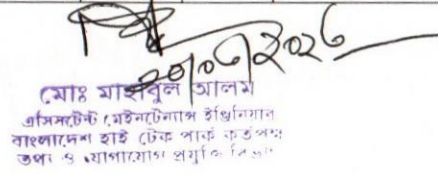 ২০/০৫/২০২৫
মোঃ মাহাবুল আলম
এসিসটেন্ট মেইনটেন্যান্স ইঞ্জিনিয়ার
বাংলাদেশ হাই টেক পার্ক কর্তৃপক্ষ
তথ্য ও যোগাযোগ প্রযুক্তি বিভাগ